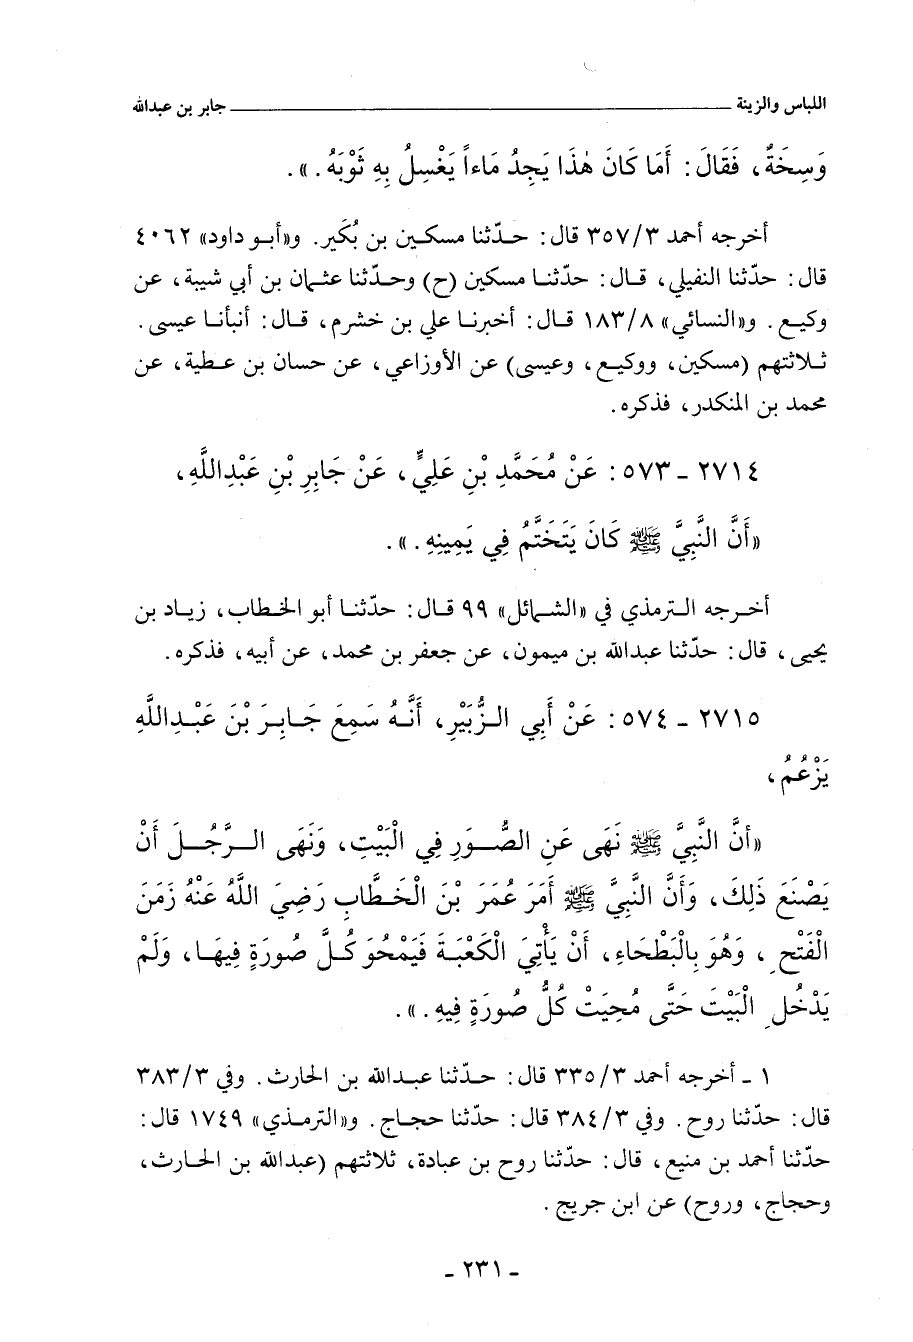 اللباس والزينة ــــــــــــــــــــ جابر بن عبدالله
وَسِخَةٌ، فَقَالَ: أَمَا كَانَ هٰذَا يَجِدُ مَاءاً يَغْسِلُ بِهِ ثَوْبَهُ.».
أخرجه أحمد ٣٥٧/٣ قال: حدّثنا مسكين بن بُكَير. و«أبو داود» ٤٠٦٢
قال: حدّثنا النفيلي، قال: حدّثنا مسكين (ح) وحدّثنا عثمان بن أبي شيبة، عن
وكيع. و«النسائي» ١٨٣/٨ قال: أخبرنا علي بن خشرم، قال: أنبأنا عيسى.
ثلاثتهم (مسكين، ووكيع، وعيسى) عن الأوزاعي، عن حسان بن عطية، عن
محمد بن المنكدر، فذكره.
٢٧١٤ - ٥٧٣: عَنْ مُحَمَّدِ بْنِ عَلِيٍّ، عَنْ جَابِرِ بْنِ عَبْدِاللَّهِ،
«أَنَّ النَّبِيَّ ﷺ كَانَ يَتَخَتَّمُ فِي يَمِينِهِ.».
أخرجه الترمذي في «الشمائل» ٩٩ قال: حدّثنا أبو الخطاب، زياد بن
يحيى، قال: حدّثنا عبدالله بن ميمون، عن جعفر بن محمد، عن أبيه، فذكره.
٢٧١٥ - ٥٧٤: عَنْ أَبِي الزُّبَيْرِ، أَنَّهُ سَمِعَ جَابِرَ بْنَ عَبْدِاللَّهِ
يَزْعُمُ،
«أنَّ النَّبِيَّ ﷺ نَهَى عَنِ الصُّوَرِ فِي الْبَيْتِ، وَنَهَى الرَّجُلَ أَنْ
يَصْنَعَ ذَلِكَ، وَأَنَّ النَّبِيَّ ﷺ أَمَرَ عُمَرَ بْنَ الْخَطَّابِ رَضِيَ اللَّهُ عَنْهُ زَمَنَ
الْفَتْحِ، وَهُوَ بِالْبَطْحَاءِ، أَنْ يَأْتِيَ الْكَعْبَةَ فَيَمْحُوَ كُلَّ صُورَةٍ فِيهَا، وَلَمْ
يَدْخُلِ الْبَيْتَ حَتَّى مُحِيَتْ كُلُّ صُورَةٍ فِيهِ.».
١ - أخرجه أحمد ٣٣٥/٣ قال: حدّثنا عبدالله بن الحارث. وفي ٣٨٣/٣
قال: حدّثنا روح. وفي ٣٨٤/٣ قال: حدّثنا حجاج. و«الترمذي» ١٧٤٩ قال:
حدّثنا أحمد بن منيع، قال: حدّثنا روح بن عبادة، ثلاثتهم (عبدالله بن الحارث،
وحجاج، وروح) عن ابن جريج.
- ٢٣١ -